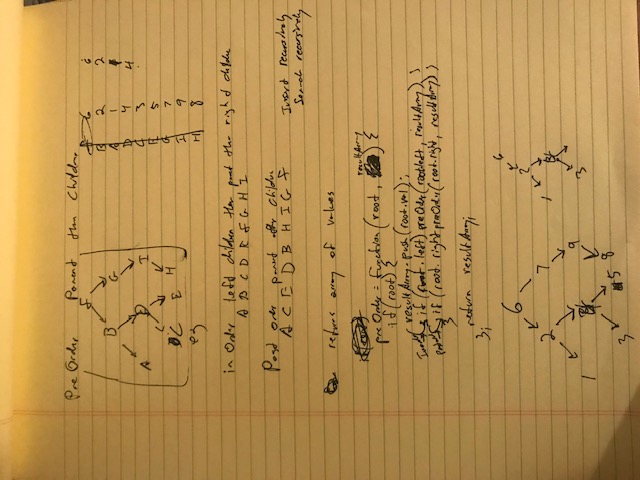 Pre Order Parent then Children
F
B G
A D I
C E H
eg
F 6 6
B 2 2
A 1
D 4 4
C 3
E 5
G 7
I 9
H 8
in Order left children then parent then right children
A B C D E F G H I
Post order parent after children
A C E D B H I G F
Insert recursively
Search recursively
returns array of values
resultArray
preOrder = function(root, ) {
if(root) {
resultArray.push(root.val);
if(root.left) preOrder(root.left, resultArray) ;
if(root.right preOrder(root.right, resultArray) ;
}
return resultArray;
};
6
2 7
1 9
3 5 8
6
2
1
3